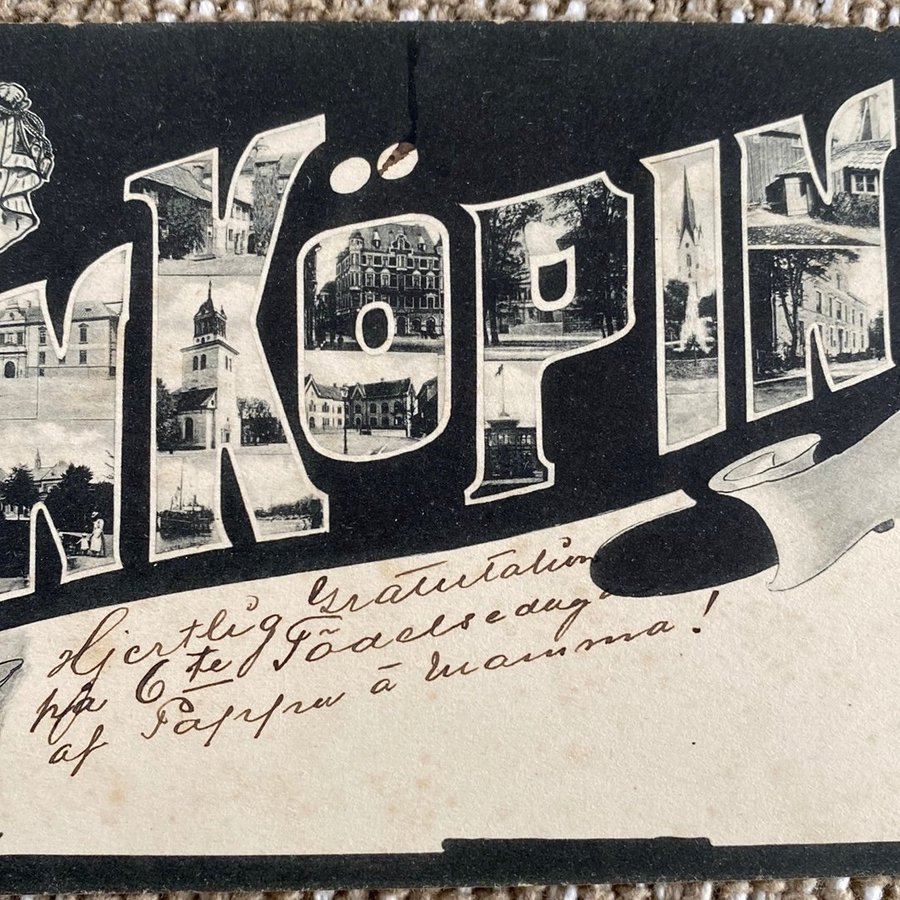 NKÖPIN
Hjertlig Gratulation
på 6te Födelsedage
af Pappa å Mamma!